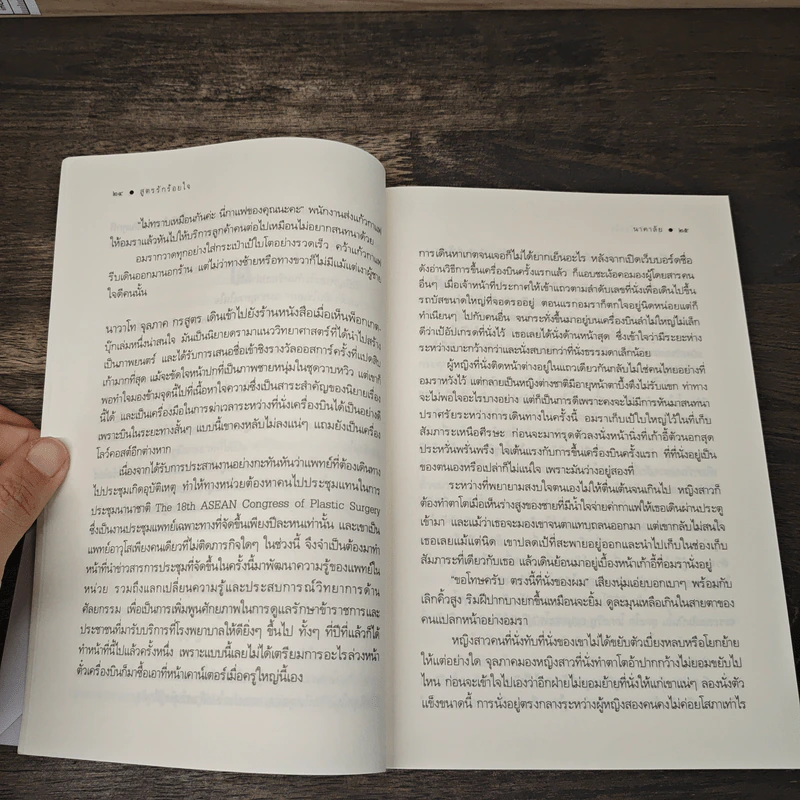 ๒๔ ● สูตรรักร้อยใจ
"ไม่ทราบเหมือนกันค่ะ นี่กาแฟของคุณนะคะ" พนักงานส่งแก้วกาแฟ
ให้อมราแล้วหันไปให้บริการลูกค้าคนต่อไปเหมือนไม่อยากสนทนาด้วย
อมรากวาดทุกอย่างใส่กระเป๋าเป้ใบโตอย่างรวดเร็ว คว้าแก้วกาแฟ
รีบเดินออกมานอกร้าน แต่ไม่ว่าทางซ้ายหรือทางขวาก็ไม่มีแม้แต่เงาผู้ชาย
ใจดีคนนั้น
นาวาโท จุลภาค กรสูตร เดินเข้าไปยังร้านหนังสือเมื่อเห็นพ็อกเกต-
บุ๊กเล่มหนึ่งน่าสนใจ มันเป็นนิยายดรามาแนววิทยาศาสตร์ที่ได้นำไปสร้าง
เป็นภาพยนตร์ และได้รับการเสนอชื่อเข้าชิงรางวัลออสการ์ครั้งที่แปดสิบ
เก้ามากที่สุด แม้จะขัดใจหน้าปกที่เป็นภาพชายหนุ่มในชุดวาบหวิว แต่เขาก็
พอทำใจมองข้ามจุดนี้ไปที่เนื้อหาใจความซึ่งเป็นสาระสำคัญของนิยายเรื่อง
นี้ได้ และเป็นเครื่องมือในการฆ่าเวลาระหว่างที่นั่งเครื่องบินได้เป็นอย่างดี
เพราะบินในระยะทางสั้นๆ แบบนี้เขาคงหลับไม่ลงแน่ๆ แถมยังเป็นเครื่อง
โลว์คอสต์อีกต่างหาก
เนื่องจากได้รับการประสานงานอย่างกะทันหันว่าแพทย์ที่ต้องเดินทาง
ไปประชุมเกิดอุบัติเหตุ ทำให้ทางหน่วยต้องหาคนไปประชุมแทนในการ
ประชุมนานาชาติ The 18th ASEAN Congress of Plastic Surgery
ซึ่งเป็นงานประชุมแพทย์เฉพาะทางที่จัดขึ้นเพียงปีละหนเท่านั้น และเขาเป็น
แพทย์อาวุโสเพียงคนเดียวที่ไม่ติดภารกิจใดๆ ในช่วงนี้ จึงจำเป็นต้องมาทำ
หน้าที่นำข่าวสารการประชุมที่จัดขึ้นในครั้งนี้มาพัฒนาความรู้ของแพทย์ใน
หน่วย รวมถึงแลกเปลี่ยนความรู้และประสบการณ์วิทยาการด้าน
ศัลยกรรม เพื่อเป็นการเพิ่มพูนศักยภาพในการดูแลรักษาข้าราชการและ
ประชาชนที่มารับบริการที่โรงพยาบาลให้ดียิ่งๆ ขึ้นไป ทั้งๆ ที่ปีที่แล้วก็ได้
ทำหน้าที่นี้ไปแล้วครั้งหนึ่ง เพราะแบบนี้เลยไม่ได้เตรียมการอะไรล่วงหน้า
ตั๋วเครื่องบินก็มาซื้อเอาที่หน้าเคาน์เตอร์เมื่อครู่ใหญ่นี้เอง
นาคาลัย ● ๒๕
การเดินหาเกตจนเจอก็ไม่ได้ยากเย็นอะไร หลังจากเปิดเว็บบอร์ดชื่อ
ดังอ่านวิธีการขึ้นเครื่องบินครั้งแรกแล้ว ก็แอบชะเง้อคอมองผู้โดยสารคน
อื่นๆ เมื่อเจ้าหน้าที่ประกาศให้เข้าแถวตามลำดับเลขที่นั่งเพื่อเดินไปขึ้น
รถบัสขนาดใหญ่ที่จอดรออยู่ ตอนแรกอมราก็ตกใจอยู่นิดหน่อยแต่ก็
ทำเนียนๆ ไปกับคนอื่น จนกระทั่งขึ้นมาอยู่บนเครื่องบินลำไม่ใหญ่ไม่เล็ก
ดีว่าเป้อัปเกรดที่นั่งไว้ เธอเลยได้นั่งด้านหน้าสุด ซึ่งเข้าใจว่ามีระยะห่าง
ระหว่างเบาะกว้างกว่าและนั่งสบายกว่าที่นั่งธรรมดาเล็กน้อย
ผู้หญิงที่นั่งติดหน้าต่างอยู่ในแถวเดียวกันกลับไม่ใช่คนไทยอย่างที่
อมราหวังไว้ แต่กลายเป็นหญิงต่างชาติมีอายุหน้าตาบึ้งตึงไม่รับแขก ท่าทาง
จะไม่พอใจอะไรบางอย่าง แต่ก็เป็นการดีเพราะคงจะไม่มีการหันมาสนทนา
ปราศรัยระหว่างการเดินทางในครั้งนี้ อมราเก็บเป้ใบใหญ่ไว้ในที่เก็บ
สัมภาระเหนือศีรษะ ก่อนจะมาทรุดตัวลงนั่งหน้านิ่งที่เก้าอี้ตัวนอกสุด
ประหวั่นพรั่นพรึง ใจเต้นแรงกับการขึ้นเครื่องบินครั้งแรก ที่ที่นั่งอยู่เป็น
ของตนเองหรือเปล่าก็ไม่แน่ใจ เพราะมันว่างอยู่สองที่
ระหว่างที่พยายามสงบใจตนเองไม่ให้ตื่นเต้นจนเกินไป หญิงสาวก็
ต้องทำตาโตเมื่อเห็นร่างสูงของชายที่มีน้ำใจจ่ายค่ากาแฟให้เธอเดินผ่านประตู
เข้ามา และแม้ว่าเธอจะมองเขาจนตาแทบถลนออกมา แต่เขากลับไม่สนใจ
เธอเลยแม้แต่นิด เขาปลดเป้ที่สะพายอยู่ออกและนำไปเก็บในช่องเก็บ
สัมภาระที่เดียวกับเธอ แล้วเดินย้อนมาอยู่เบื้องหน้าเก้าอี้ที่อมรานั่งอยู่
"ขอโทษครับ ตรงนี้ที่นั่งของผม" เสียงนุ่มเอ่ยบอกเบาๆ พร้อมกับ
เลิกคิ้วสูง ริมฝีปากบางยกขึ้นเหมือนจะยิ้ม ดูละมุนเหลือเกินในสายตาของ
คนแปลกหน้าอย่างอมรา
หญิงสาวคนที่นั่งทับที่นั่งของเขาไม่ได้ขยับตัวเบี่ยงหลบหรือโยกย้าย
ให้แต่อย่างใด จุลภาคมองหญิงสาวที่นั่งทำตาโตอ้าปากกว้างไม่ยอมขยับไป
ไหน ก่อนจะเข้าใจไปเองว่าอีกฝ่ายไม่ยอมย้ายที่นั่งให้แก่เขาแน่ๆ ลองนั่งตัว
แข็งขนาดนี้ การนั่งอยู่ตรงกลางระหว่างผู้หญิงสองคนคงไม่ค่อยโสภาเท่าไร